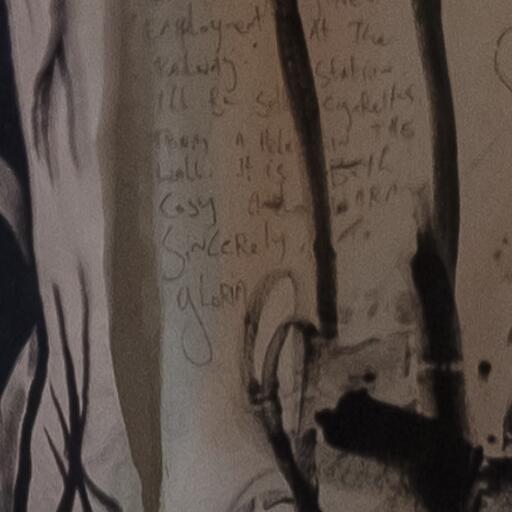 Employment At The
Railway Station
I'll Be Selling Cigarettes
From A Hole in THE
Wall. It is Both
Cosy And WARM
Sincerely,
gloria